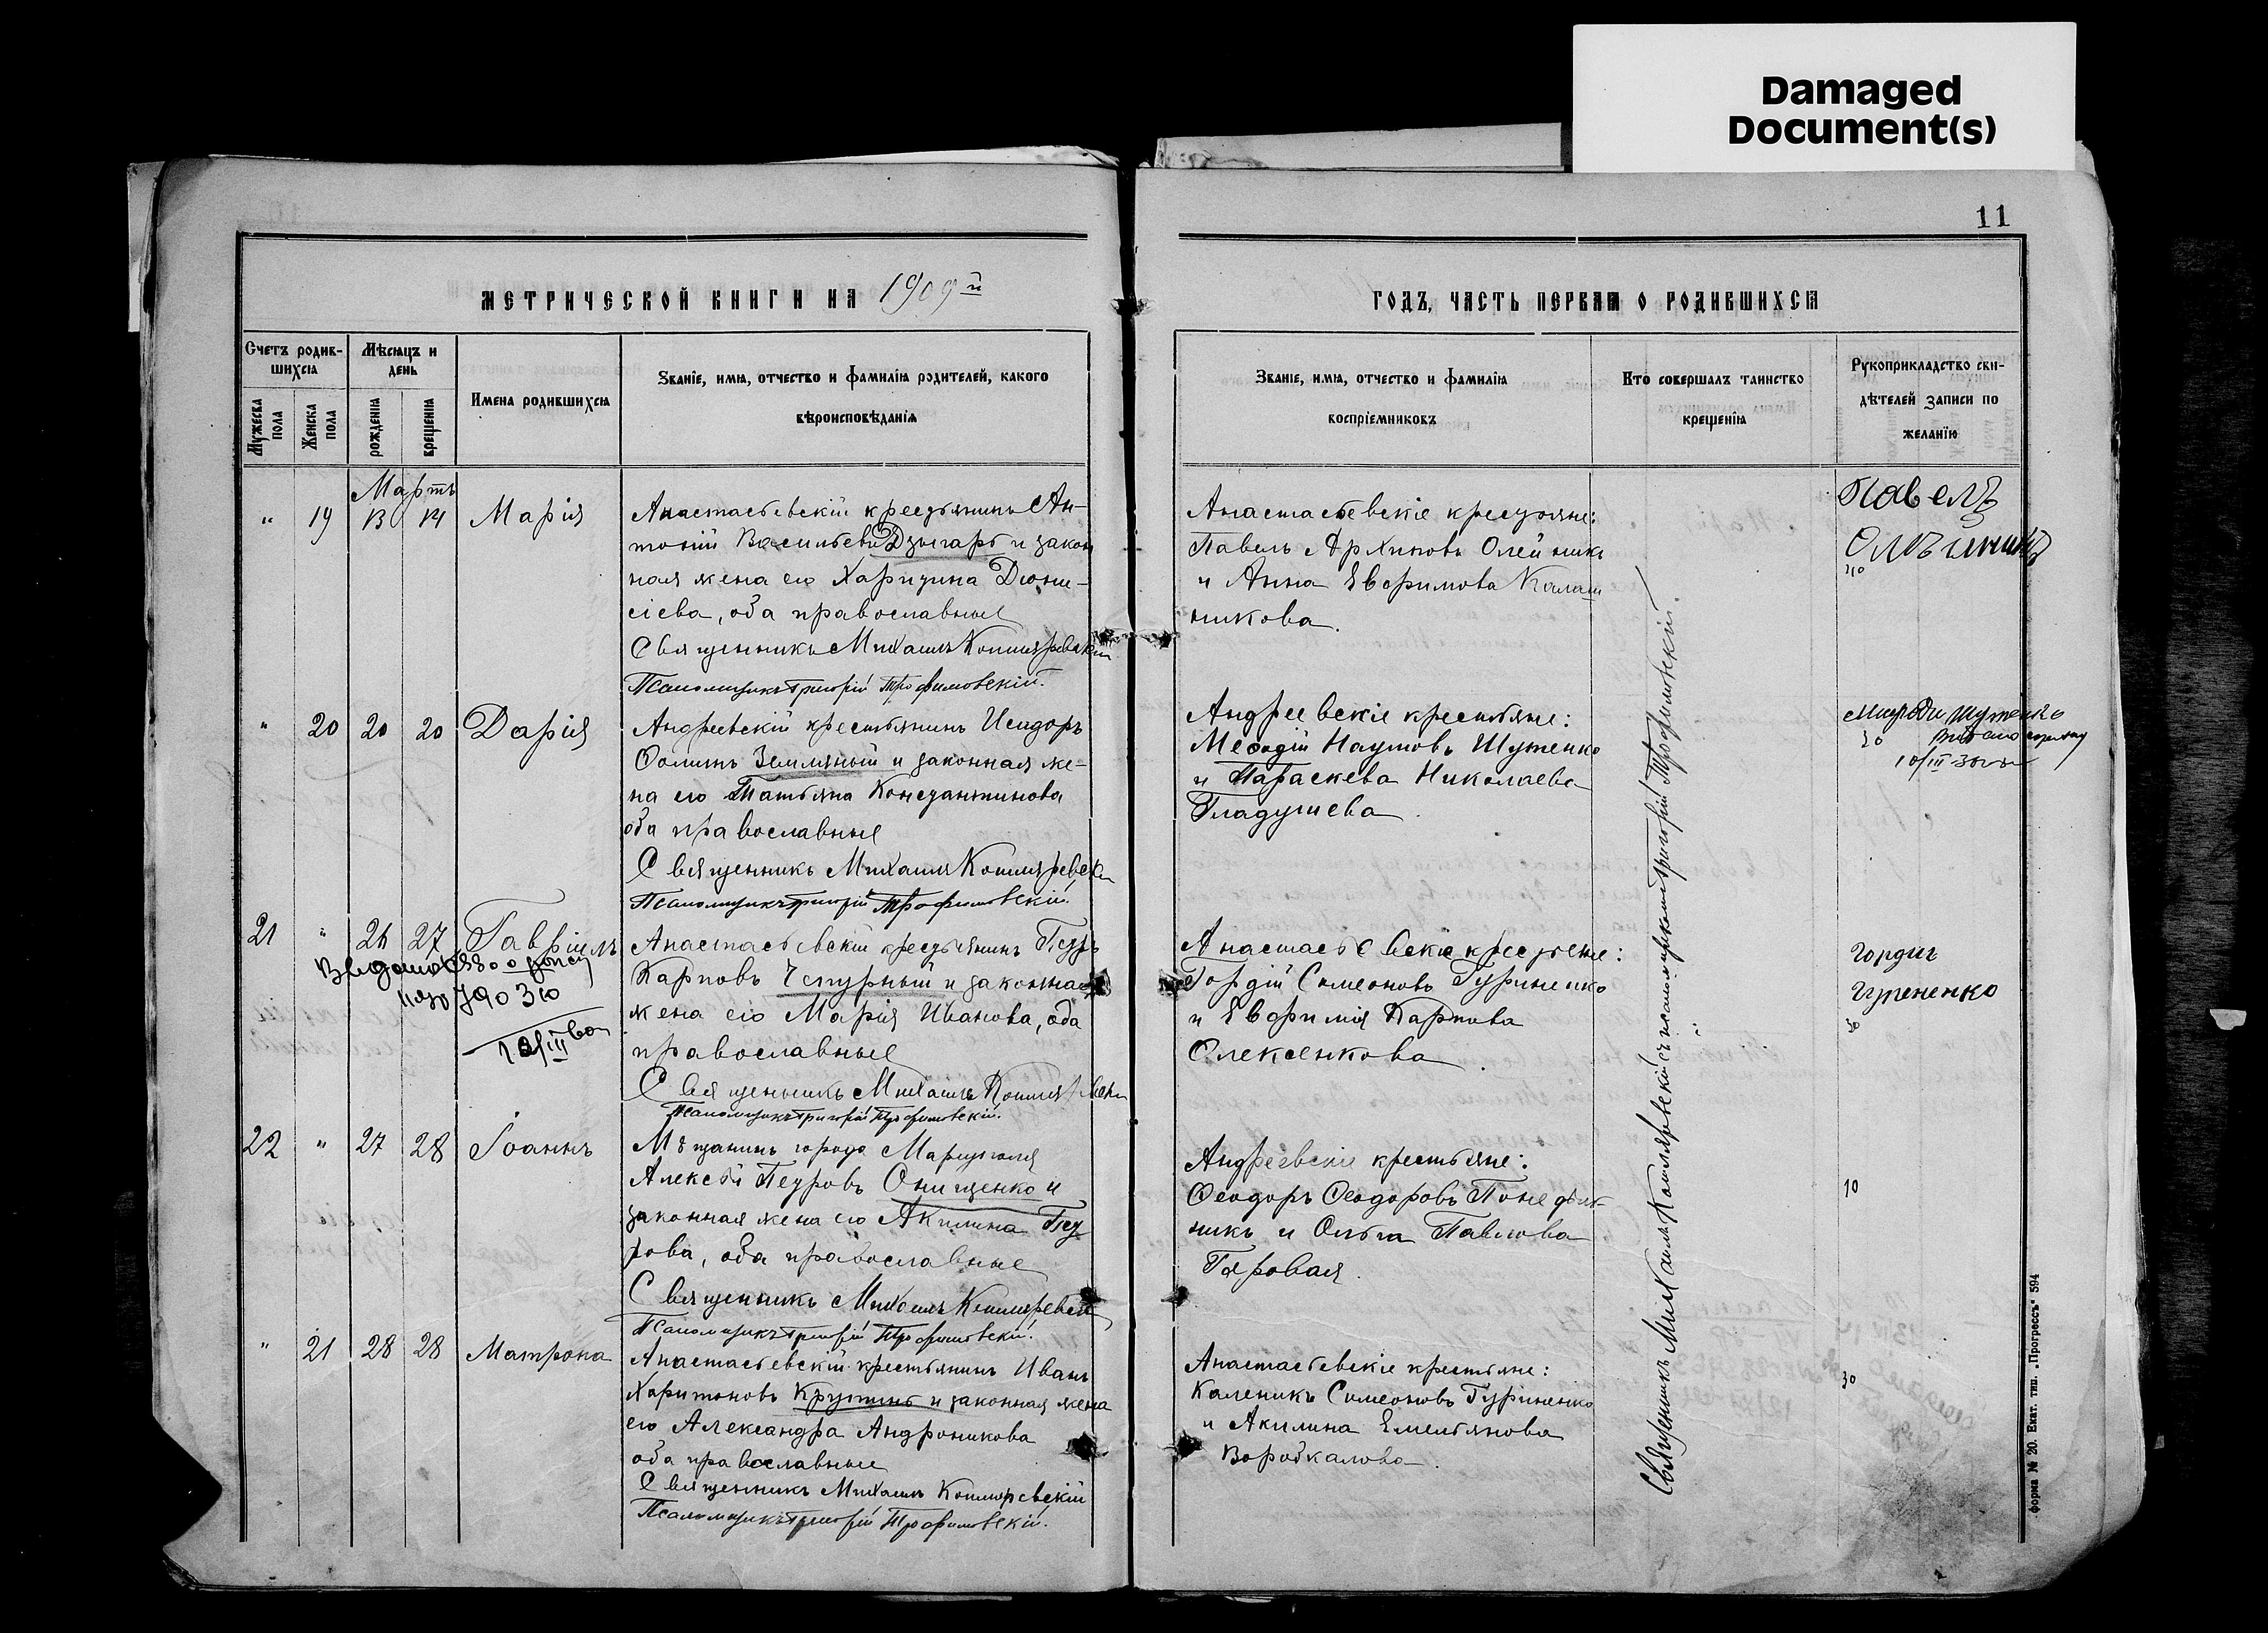 Damaged
Document(s)
11
МЕТРИЧЕСКОЙ КНИГИ НА 1909й
Счетъ родив-
шихся
Мѣсяцъ и
день
Мужеска
пола
Женска
пола
рожденія
крещенія
Имена родившихся
Званіе, имя, отчество и фамилія родителей, какого
вѣроисповѣданія
Мартъ
" 19 13 14 Марія
Анастасьевскій крестьянинъ Ан-
тоній Васильевъ Дзыгарь и закон
ная жена его Харитина Діони-
сіева, оба православные
Священникъ Михаилъ Котляревскій
Псаломщикъ Григорій Трофимовскій.
" 20 20 20 Дарія
Андреевскій крестьянинъ Исидоръ
Ѳоминъ Земляный и законная же-
на его Татьяна Константинова
оба православные
Священникъ Михаилъ Котляревскій
Псаломщикъ Григорій Трофимовскій.
21 " 26 27 Гавріилъ
790310
10/III
Анастасьевскій крестьянинъ Петръ
Карповъ Чепурный и законная
жена его Марія Иванова, оба
православные
Священникъ Михаилъ Котляревскій
Псаломщикъ Григорій Трофимовскій.
22 " 27 28 Іоаннъ
Мѣщанинъ города Маріуполя
Алексѣй Петровъ Онищенко и
законная жена его Акилина Пет
рова, оба православные
Священникъ Михаилъ Котляревскій
Псаломщикъ Григорій Трофимовскій.
" 21 28 28 Матрона
Анастасьевскій крестьянинъ Иванъ
Харитоновъ Крутинь и законная жена
его Александра Андроникова
оба православные
Священникъ Михаилъ Котляревскій
Псаломщикъ Григорій Трофимовскій.
ГОДЪ, ЧАСТЬ ПЕРВАЯ О РОДИВШИХСЯ
Званіе, имя, отчество и фамилія
воспріемниковъ
Кто совершалъ таинство
крещенія
Рукоприкладство сви-
дѣтелей записи по
желанію
Анастасьевскіе крестьяне:
Павелъ Архиповъ Олейникъ
и Анна Евфимова Калаш
никова.
Павелъ
Андреевскіе крестьяне:
Меѳодій Наумовъ Шутенко
и Параскева Николаева
Гладушева.
Шутенко
10/III
Анастасьевскіе крестьяне:
Гордій Симеоновъ Гуриненко
и Евфимія Карпова
Олексенкова.
Гордій
30
Андреевскіе крестьяне:
Ѳеодоръ Ѳеодоровъ Понедѣль-
никъ и Ольга Павлова
Гаровая.
10
Анастасьевскіе крестьяне:
Каленикъ Симеоновъ Гуриненко
и Акилина Емельянова
Воробкалова.
30
Священникъ Михаилъ Котляревскій съ псаломщикомъ Григорій Трофимовскій.
Форма № 20. Екат. тип. „Прогрессъ" 594